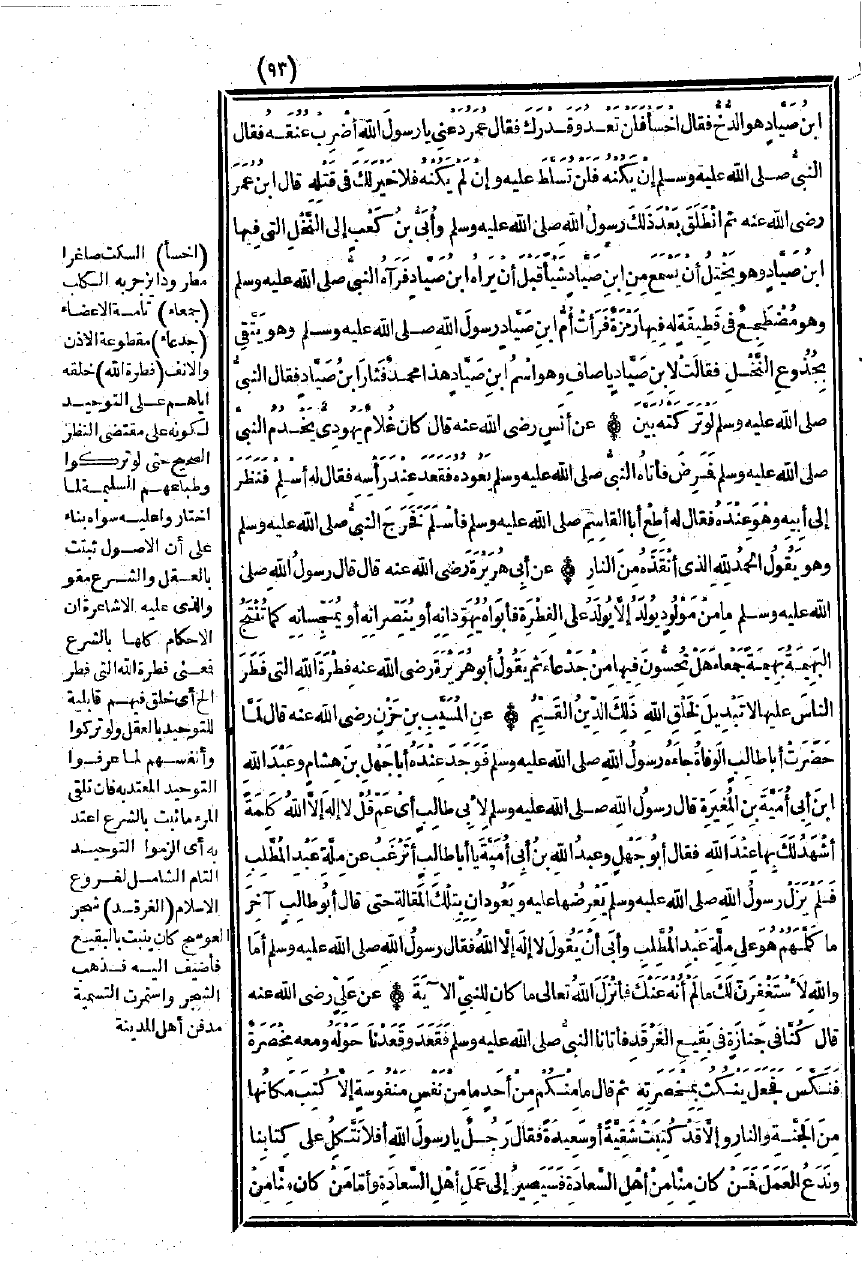 (٩٣)
ابنُ صَيَّادٍ هو الدُّخُّ فقال اخسأ فلن تعدو قدرك فقال عمر دعني يا رسولَ اللهِ أضْرِبْ عنقه فقال
النبيُّ صلى الله عليه وسلم إنْ يكنه فلن تسلط عليه وإن لم يكنه فلا خير لك في قتله قال ابن عمر
رضى الله عنه ثم انْطَلَقَ بَعْدَ ذَلكَ رسولُ اللهِ صلى الله عليه وسلم وأُبَيُّ بنُ كَعْبٍ إلى النَّخْلِ التي فيها
ابنُ صَيَّادٍ وهو يَخْتِلُ أنْ يَسْمَعَ مِن ابنِ صَيَّادٍ شَيْأً قَبْلَ أنْ يَراهُ ابنُ صَيَّادٍ فَرَآهُ النبيُّ صلى الله عليه وسلم
وهو مُضْطَجِعٌ في قَطِيفَةٍ له فيها رَمْزَةٌ فَرَأَتْ أُمُّ ابنِ صَيَّادٍ رسولَ اللهِ صلى الله عليه وسلم وهو يَتَّقِي
بِجُذُوعِ النَّخْلِ فقالَتْ لابنِ صَيَّادٍ يا صافِ وهو اسْمُ ابنِ صَيَّادٍ هذا محمدٌ فَثارَ ابنُ صَيَّادٍ فقال النبيُّ
صلى الله عليه وسلم لو تركته بين عن أنَسٍ رضى الله عنه قال كان غُلامٌ يهوديٌّ يخدمُ النبيَّ
صلى الله عليه وسلم فَمَرِضَ فأتاهُ النبيُّ صلى الله عليه وسلم يعوده فقعد عند رأسه فقال له أسلم فنظر
إلى أبيه وهو عِنْدَهُ فقال له أطِعْ أبا القاسِمِ صلى الله عليه وسلم فأسْلَمَ فَخَرَجَ النبيُّ صلى الله عليه وسلم
وهو يَقُولُ الحمدُ للهِ الذي أنْقَذَهُ مِنَ النارِ عن أبي هُرَيْرَةَ رضى الله عنه قال قال رسولُ اللهِ صلى
الله عليه وسلم ما مِنْ مَوْلُودٍ يُولَدُ إلَّا يُولَدُ على الفِطْرَةِ فأبَواهُ يُهَوِّدانِهِ أو يُنَصِّرانِهِ أو يُمَجِّسانِهِ كما تُنْتَجُ
البَهِيمَةُ بَهِيمَةً جَمْعاءَ هَلْ تُحِسُّونَ فيها مِنْ جَدْعاءَ ثم يَقُولُ أبو هُرَيْرَةَ رضى الله عنه فِطْرَةَ اللهِ التي فَطَرَ
الناسَ عليها لا تَبْدِيلَ لِخَلْقِ اللهِ ذَلِكَ الدِّينُ القَيِّمُ عنِ المُسَيَّبِ بنِ حَزْنٍ رضى الله عنه قال لَمَّا
حَضَرَتْ أبا طالِبٍ الوَفاةُ جاءَهُ رسولُ اللهِ صلى الله عليه وسلم فَوَجَدَ عِنْدَهُ أبا جَهْلِ بنَ هشامٍ وعَبْدَ اللهِ
ابنَ أبي أُمَيَّةَ بنِ المُغِيرَةِ قال رسولُ اللهِ صلى الله عليه وسلم لأبي طالِبٍ أيْ عَمِّ قُلْ لا إلهَ إلَّا اللهُ كَلِمَةً
أشْهَدُ لَكَ بها عِنْدَ اللهِ فقال أبو جَهْلٍ وعبدُ اللهِ بنُ أبي أُمَيَّةَ يا أبا طالِبٍ أتَرْغَبُ عن مِلَّةِ عبدِ المُطَّلِبِ
فَلَمْ يَزَلْ رسولُ اللهِ صلى الله عليه وسلم يَعْرِضُها عليه ويَعُودانِ بِتِلْكَ المَقالَةِ حتى قال أبو طالِبٍ آخِرَ
ما كَلَّمَهُمْ هُوَ على مِلَّةِ عَبْدِ المُطَّلِبِ وأبَى أنْ يَقُولَ لا إلهَ إلَّا اللهُ فقال رسولُ اللهِ صلى الله عليه وسلم أما
واللهِ لَأسْتَغْفِرَنَّ لَكَ ما لَمْ أُنْهَ عَنْكَ فأنْزَلَ اللهُ تعالى ما كان للنبيِّ الآيَةَ عن عَلِيٍّ رضى الله عنه
قال كُنَّا في جَنازَةٍ في بَقِيعِ الغَرْقَدِ فأتانا النبيُّ صلى الله عليه وسلم فَقَعَدَ وقَعَدْنا حَوْلَهُ ومعه مِخْصَرَةٌ
فَنَكَّسَ فجعل يَنْكُتُ بِمِخْصَرَتِهِ ثم قال ما مِنْكُم مِنْ أحَدٍ ما مِنْ نَفْسٍ مَنْفُوسَةٍ إلَّا كُتِبَ مَكانُها
مِنَ الجَنَّةِ والنارِ وإلَّا قَدْ كُتِبَتْ شَقِيَّةً أو سَعِيدَةً فقال رَجُلٌ يا رسولَ اللهِ أفَلا نَتَّكِلُ على كِتابِنا
ونَدَعُ العَمَلَ فَمَنْ كان مِنَّا مِنْ أهْلِ السَّعادَةِ فَسَيَصِيرُ إلى عَمَلِ أهْلِ السَّعادَةِ وأمَّا مَنْ كان مِنَّا مِنْ
(اخسأ) اسكت صاغرا
مطرودا يزجر به الكلب
(جمعاء) تامة الاعضاء
(جدعاء) مقطوعة الاذن
والانف (فطرة الله) خلقه
اياهم على التوحيد
لكونه على مقتضى النظر
الصحيح حتى لو تركوا
وطباعهم السليمة لما
اختاروا عليه سواه بناء
على أن الاصول تثبت
بالعقل والشرع مقو
والذى عليه الاشاعرة ان
الاحكام كلها بالشرع
فمعنى فطرة الله التى فطر
الخ أى خلق فيهم قابلية
للتوحيد بالعقل ولو تركوا
وأنفسهم لما عرفوا
التوحيد المعتد به فان تلقى
المرء ما ثبت بالشرع اعتد
به أى الزموا التوحيد
التام الشامل لفروع
الاسلام (الغرقد) شجر
العوسج كان ينبت بالبقيع
فأضيف اليه فذهب
الشجر واستمرت التسمية
مدفن أهل المدينة